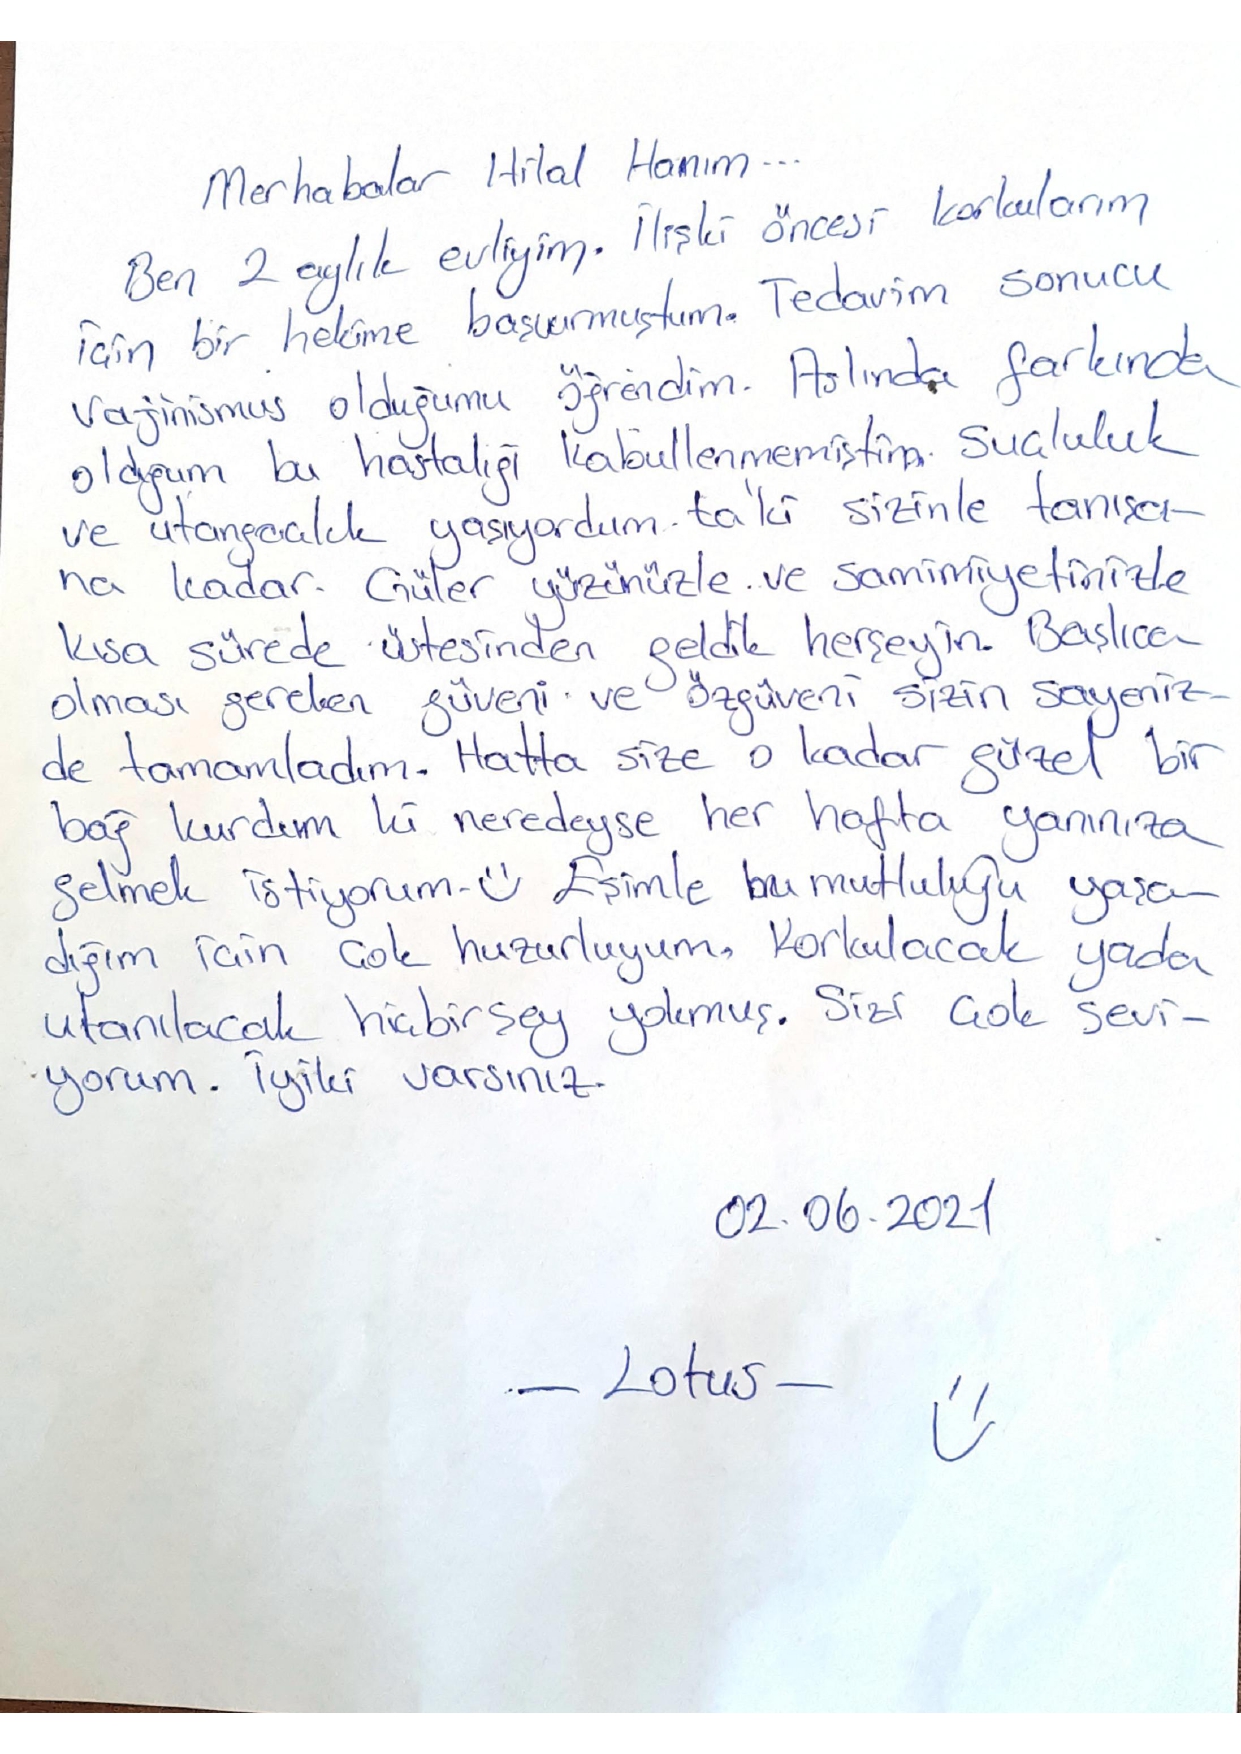 Merhabalar Hilal Hanım...
Ben 2 aylık evliyim. İlişki öncesi korkularım
için bir hekime başvurmuştum. Tedavim sonucu
vajinismus olduğumu öğrendim. Aslında farkında
olduğum bu hastalığı kabullenmemiştim. Suçluluk
ve utangaçlık yaşıyordum. ta'ki sizinle tanışa-
na kadar. Güler yüzünüzle ve samimiyetinizle
kısa sürede üstesinden geldik herşeyin. Başlıca
olması gereken güveni ve özgüveni sizin sayeniz-
de tamamladım. Hatta size o kadar güzel bir
bağ kurdum ki neredeyse her hafta yanınıza
gelmek istiyorum. Eşimle bu mutluluğu yaşa-
dığım için çok huzurluyum. Korkulacak yada
utanılacak hiçbirşey yokmuş. Sizi çok sevi-
yorum. İyiki varsınız.
02.06.2021
— Lotus —